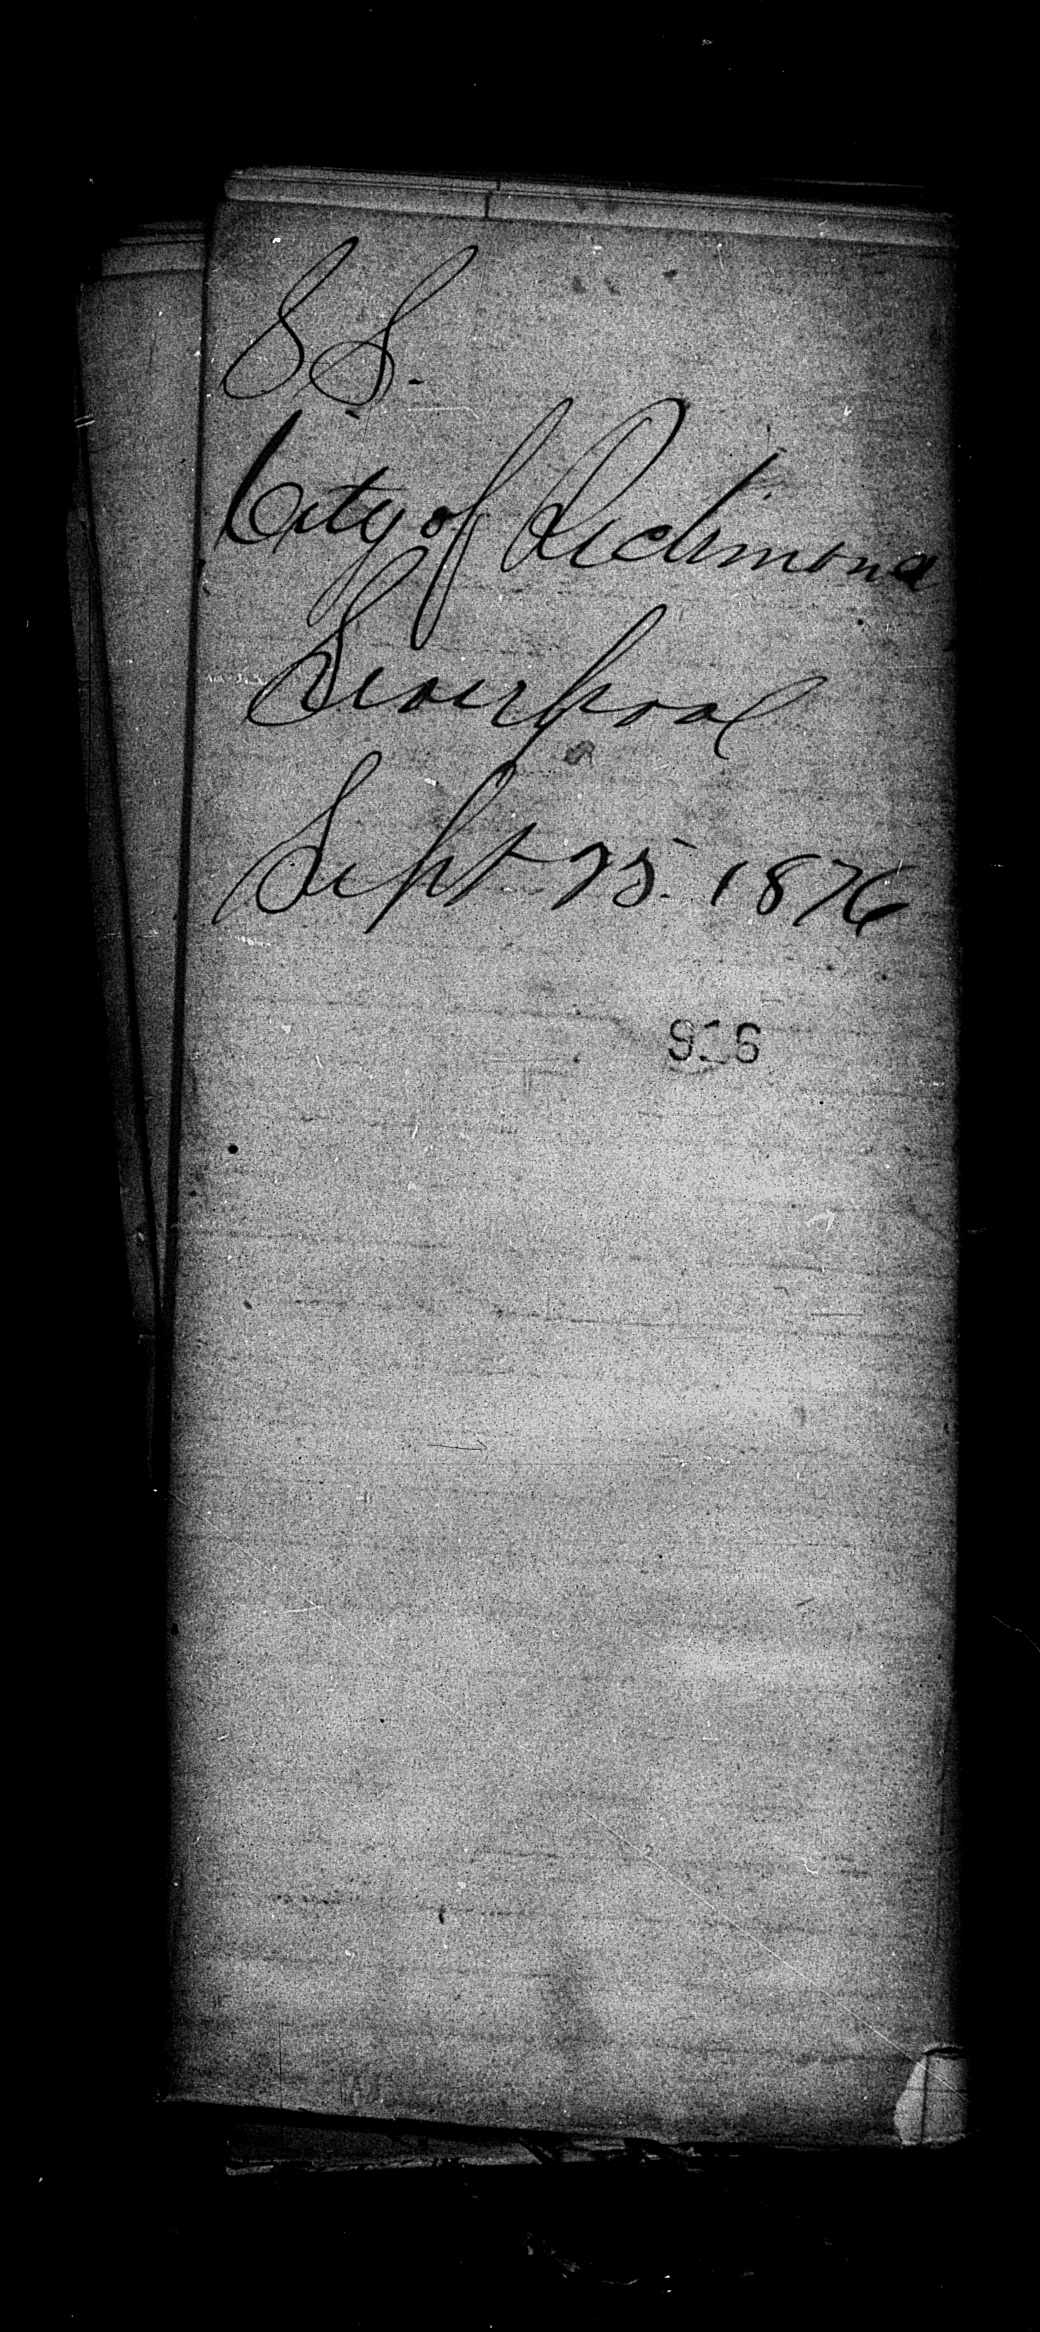 S S.
City of Richmond
Liverpool
Sept 25. 1876
916